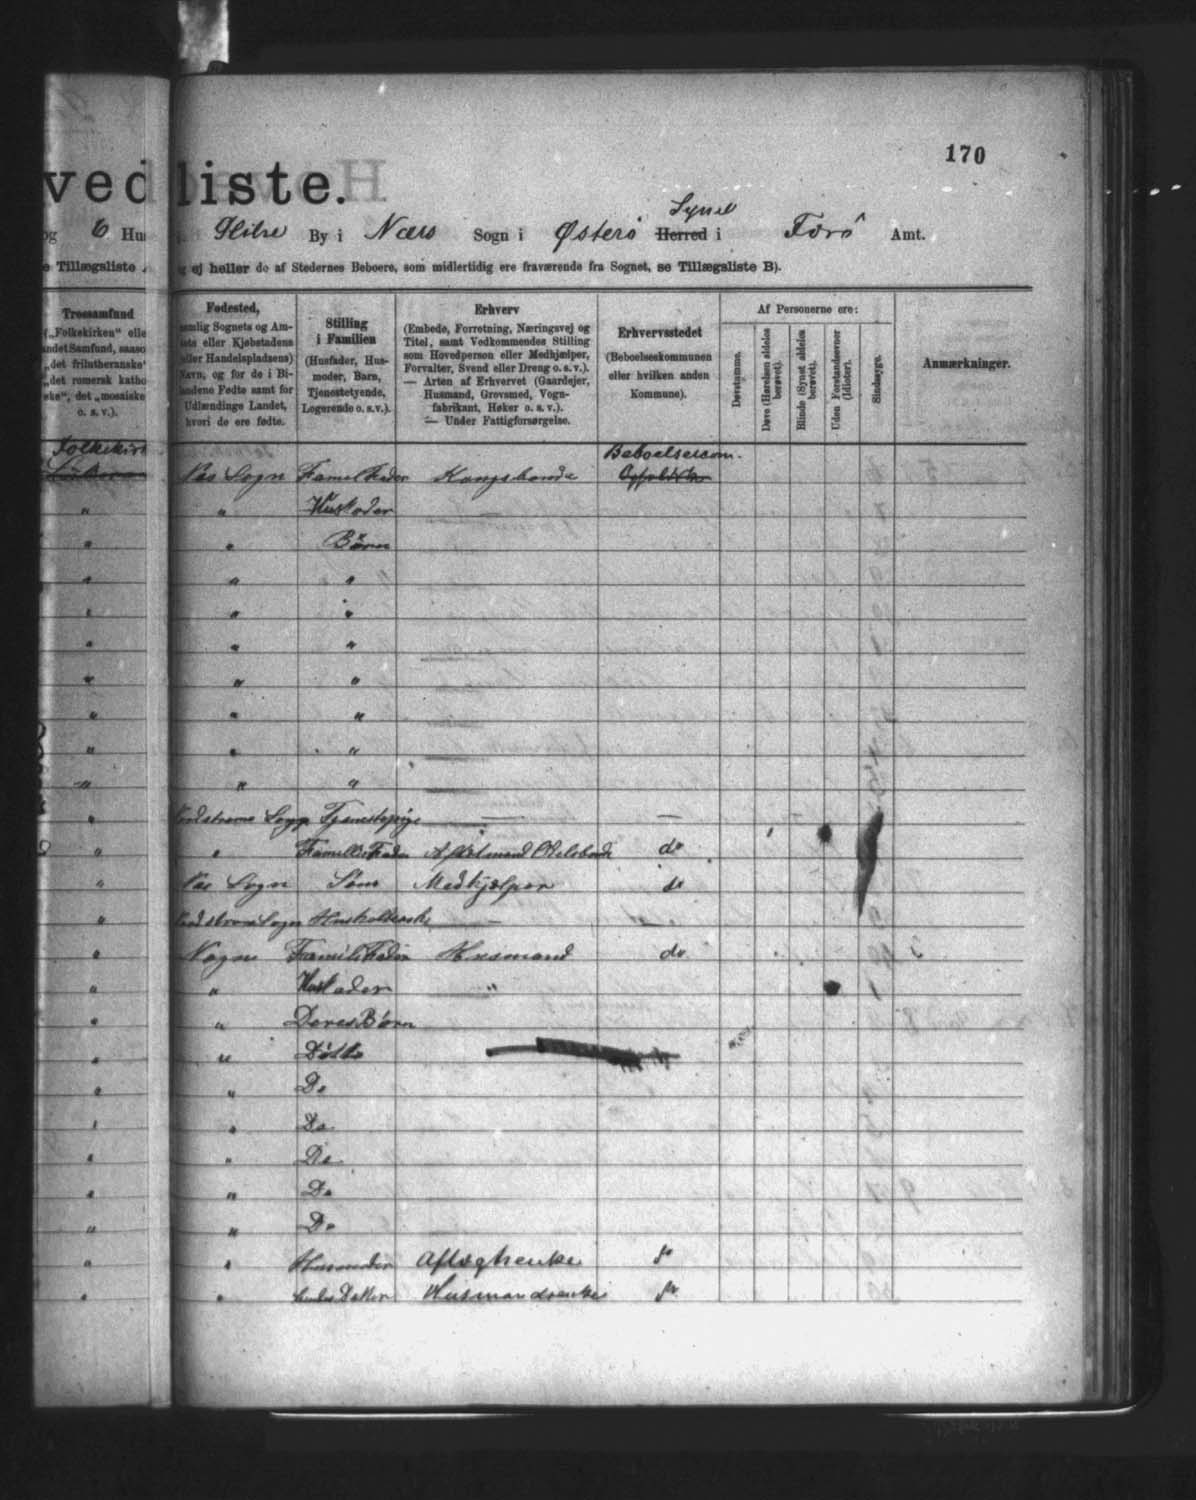 170
ved liste.
og 6 Hu Glibre By i Næs Sogn i Østerø Herred i Syssel Færø Amt.
e Tillægsliste ej heller de af Stedernes Beboere, som midlertidig ere fraværende fra Sognet, se Tillægsliste B).
Trossamfund
(„Folkekirken" elle
andet Samfund, saaso
„det frilutheranske"
„det romersk katho
ske", det „mosaiske
o. s. v.).
Fødested,
nemlig Sognets og Am-
tets eller Kjøbstadens
eller Handelspladsens)
Navn, og for de i Bi-
landene Fødte samt for
Udlændinge Landet,
hvori de ere fødte.
Stilling
i Familien
(Husfader, Hus-
moder, Barn,
Tjenestetyende,
Logerende o. s. v.).
Erhverv
(Embede, Forretning, Næringsvej og
Titel, samt Vedkommendes Stilling
som Hovedperson eller Medhjælper,
Forvalter, Svend eller Dreng o. s. v.).
— Arten af Erhvervet (Gaardejer,
Husmand, Grovsmed, Vogn-
fabrikant, Høker o. s. v.).
— Under Fattigforsørgelse.
Erhvervsstedet
(Beboelseskommunen
eller hvilken anden
Kommune).
Af Personerne ere:
Døvstumme.
Døve (Hørelsen aldeles
berøvet).
Blinde (Synet aldeles
berøvet).
Uden Forstandsevner
(Idioter).
Sindssyge.
Anmærkninger.
Folkekirk Beboelsescom.
Næs Sogn Famel Fader Kongsbonde
" " Husmoder
" " Børn
" " "
" " "
" " "
" " "
" " "
" " "
" " "
" Nordstrømø Sogn Tjenestepige — —
" " Familie Fader do
" Næs Sogn Søn Medhjælper do
" Nordstrømø Sogn Husholderske —
" Familie Fader Husmand do
" " Husmoder "
" " Deres Børn
" " Datter
" " Do
" " Do
" " Do
" " Do
" " Do
" " Husmoder Aftægtsenke do
" " hendes Datter Husmandsenke do